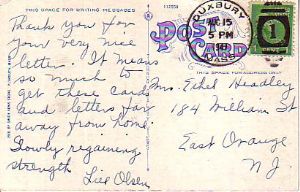 THIS SPACE FOR WRITING MESSAGES
Thank you for
your very nice
letter. It means
so much to
get these cards
and letters far
away from home.
Slowly regaining
strength
Lise Olsen
POST
CARD
DUXBURY
15
5 PM
MASS.
1
THIS SPACE FOR ADDRESS ONLY
Mrs. Ethel Headley
184 William St
East Orange
N J